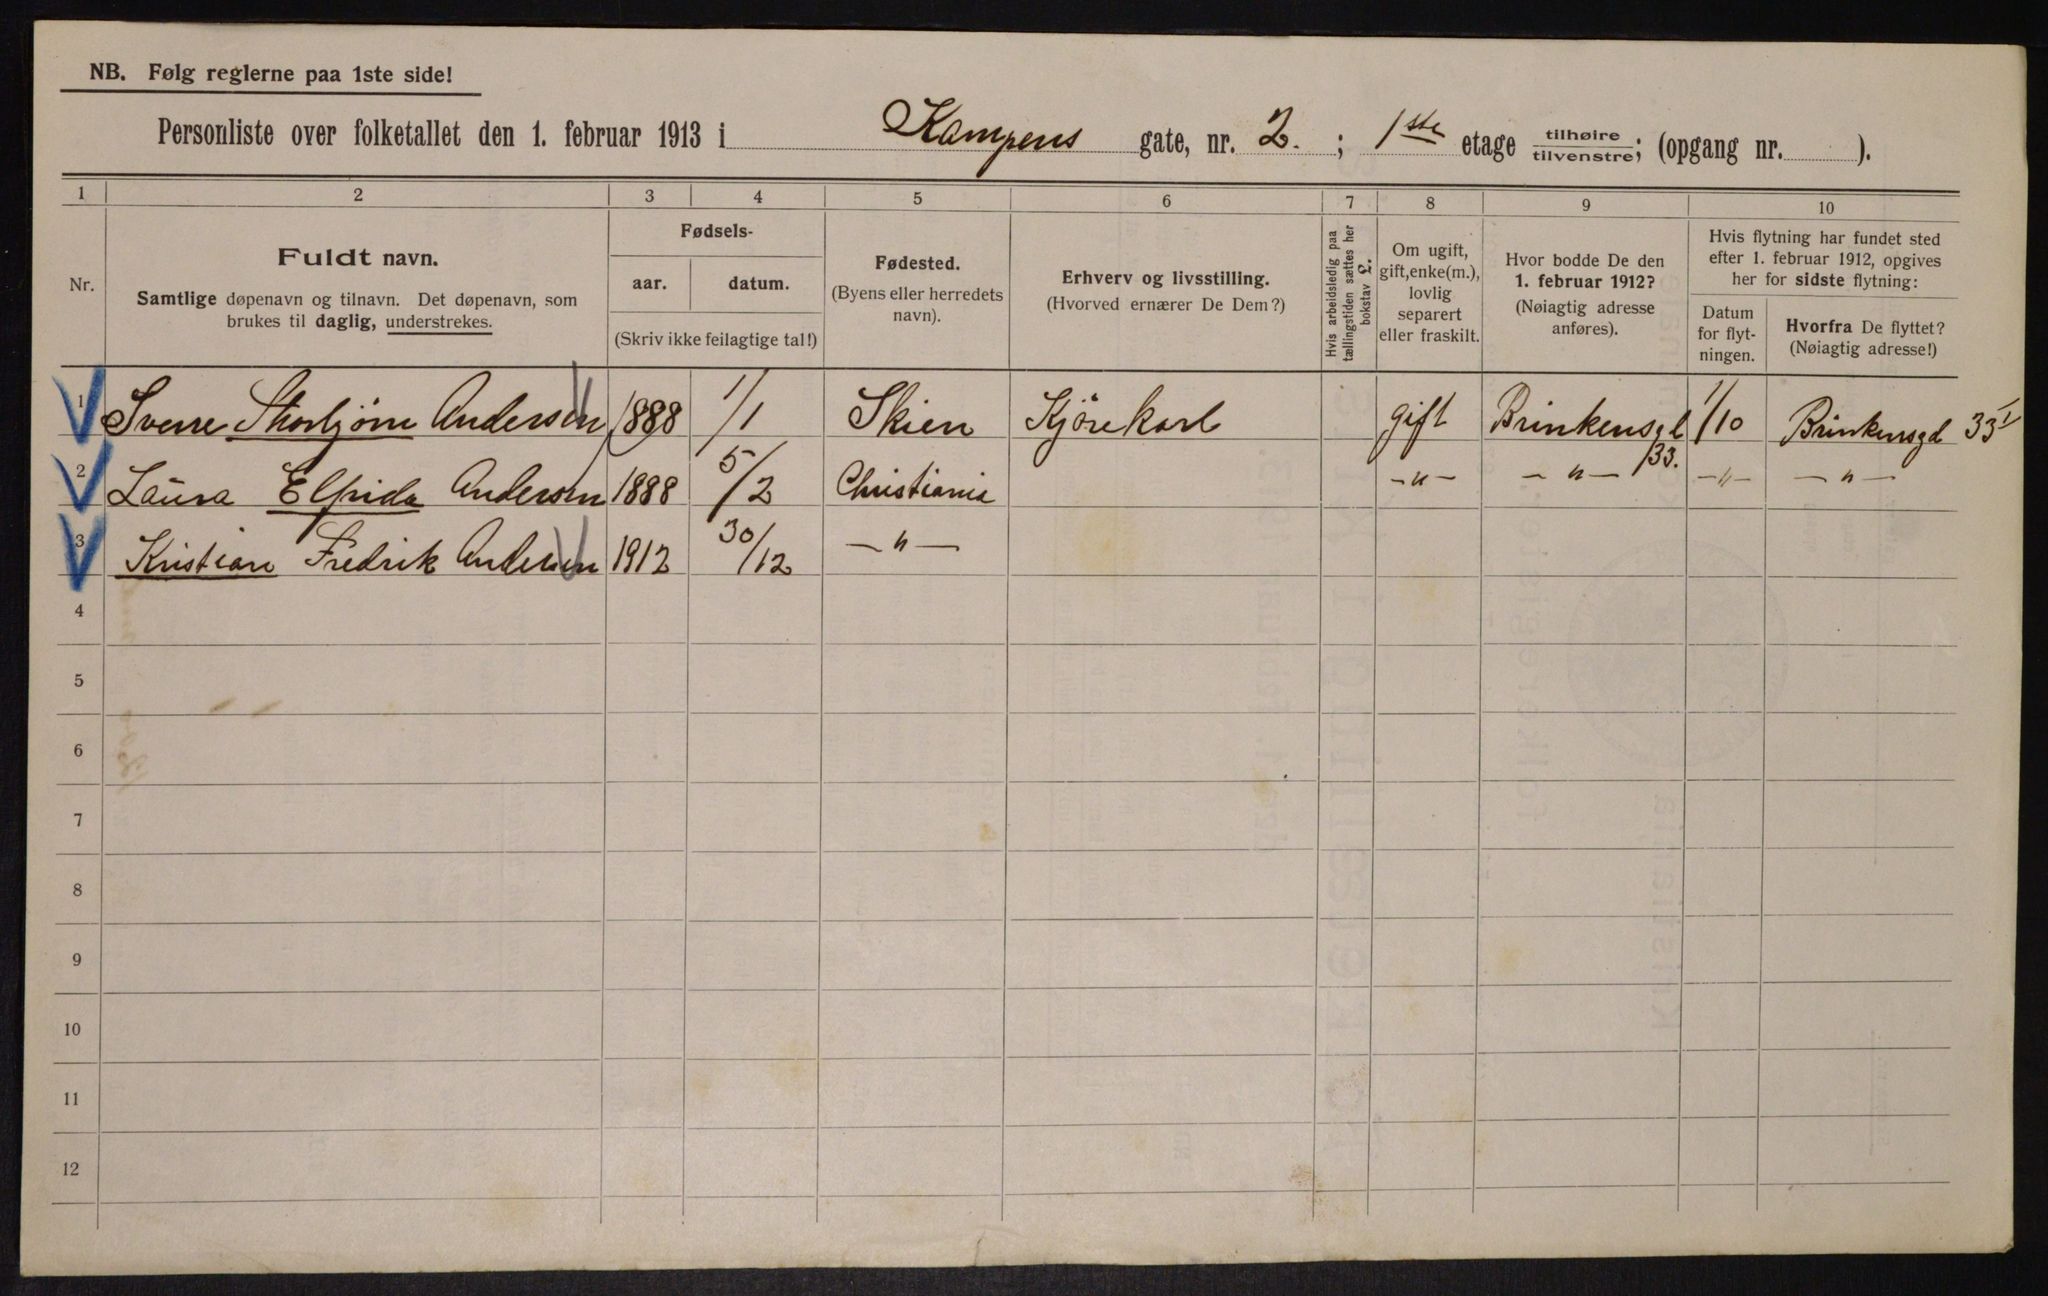 NB. Følg reglerne paa 1ste side!
Personliste over folketallet den 1. februar 1913 i Kampens gate, nr. 2. ; 1ste etage tilhøire/tilvenstre; (opgang nr. ).
1 2 3 4 5 6 7 8 9 10
Nr.
Fuldt navn.
Samtlige døpenavn og tilnavn. Det døpenavn, som
brukes til daglig, understrekes.
Fødsels-
aar. datum.
(Skriv ikke feilagtige tal!)
Fødested.
(Byens eller herredets
navn).
Erhverv og livsstilling.
(Hvorved ernærer De Dem?)
Hvis arbeidsledig paa
tællingstiden sættes her
bokstav L.
Om ugift,
gift, enke(m.),
lovlig
separert
eller fraskilt.
Hvor bodde De den
1. februar 1912?
(Nøiagtig adresse
anføres).
Hvis flytning har fundet sted
efter 1. februar 1912, opgives
her for sidste flytning:
Datum
for flyt-
ningen.
Hvorfra De flyttet?
(Nøiagtig adresse!)
1 Sverre Andersen 1888 1/1 Skien Kjörekarl gift Brinkensgd 33. 1/10 Brinkensgd 33 I
2 Laura Elfrida Andersen 1888 5/2 Christiania -"- -"- -"- -"-
3 Kristian Fredrik Andersen 1912 30/12 -"-
4
5
6
7
8
9
10
11
12